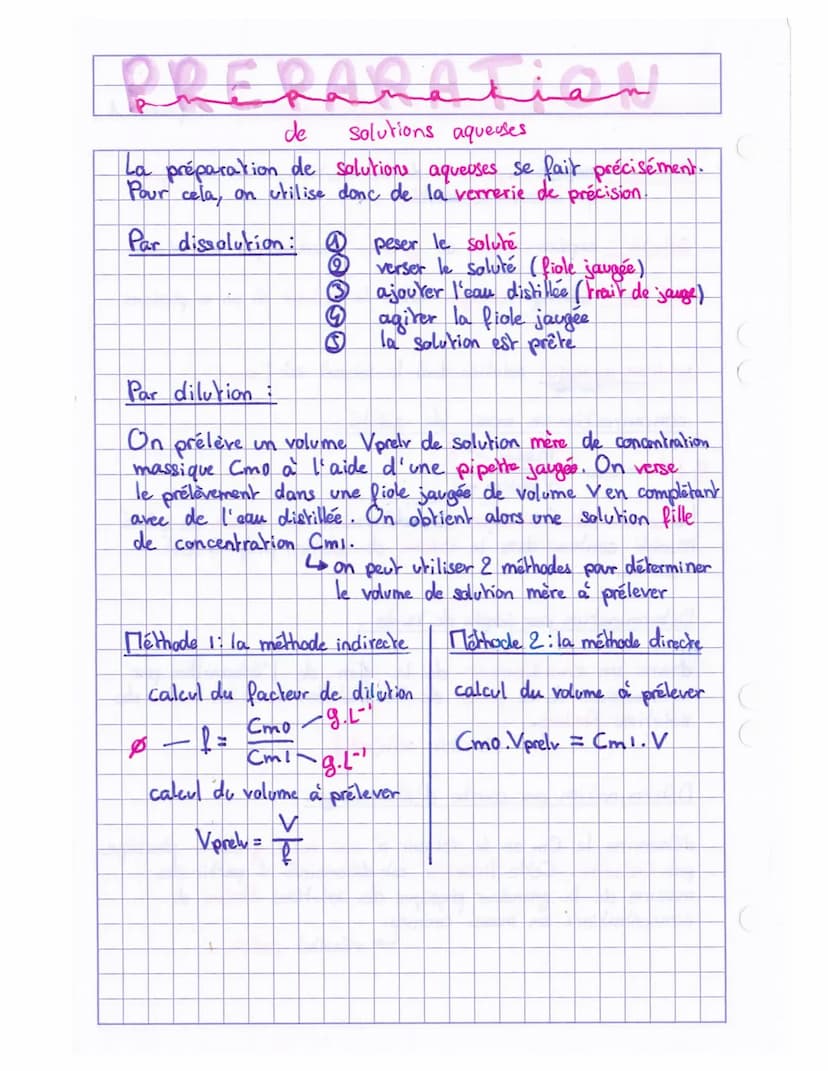 PREPARATION
preparation
de solutions aqueuses
La préparation de solutions aqueuses se fait précisément.
Pour cela, on utilise donc de la verrerie de précision.
Par dissolution : ① peser le soluté
② verser le soluté (fiole jaugée)
③ ajouter l'eau distillée (trait de jauge)
④ agiter la fiole jaugée
⑤ la solution est prête
Par dilution :
On prélève un volume Vprelv de solution mère de concentration
massique Cm0 à l'aide d'une pipette jaugée. On verse
le prélèvement dans une fiole jaugée de volume V en complétant
avec de l'eau distillée. On obtient alors une solution fille
de concentration Cm1.
↳ on peut utiliser 2 méthodes pour déterminer
le volume de solution mère à prélever
Méthode 1 : la méthode indirecte
calcul du facteur de dilution
ø — f = Cm0 / Cm1
g.L⁻¹
g.L⁻¹
calcul du volume à prélever
Vprelv = V / f
Méthode 2 : la méthode directe
calcul du volume à prélever
Cm0.Vprelv = Cm1.V